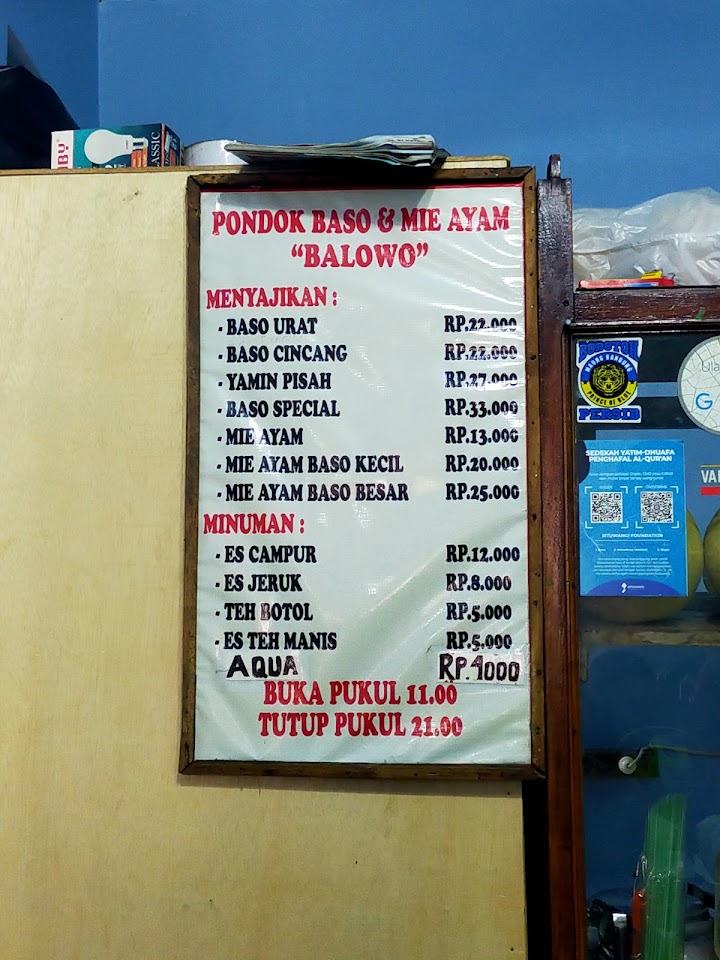 BU
CLASSIC
PONDOK BASO & MIE AYAM
“BALOWO”
MENYAJIKAN :
- BASO URAT RP.22.000
- BASO CINCANG RP.22.000
- YAMIN PISAH RP.27.000
- BASO SPECIAL RP.33.000
- MIE AYAM RP.13.000
- MIE AYAM BASO KECIL RP.20.000
- MIE AYAM BASO BESAR RP.25.000
MINUMAN :
- ES CAMPUR RP.12.000
- ES JERUK RP.8.000
- TEH BOTOL RP.5.000
- ES TEH MANIS RP.5.000
AQUA RP.4000
BUKA PUKUL 11.00
TUTUP PUKUL 21.00
BOBOTOH
MAUNG BANDUNG
PRINCE OF BLUE
PERSIB
Ula
G
SEDEKAH YATIM-DHUAFA
PENGHAFAL AL-QUR'AN
VA